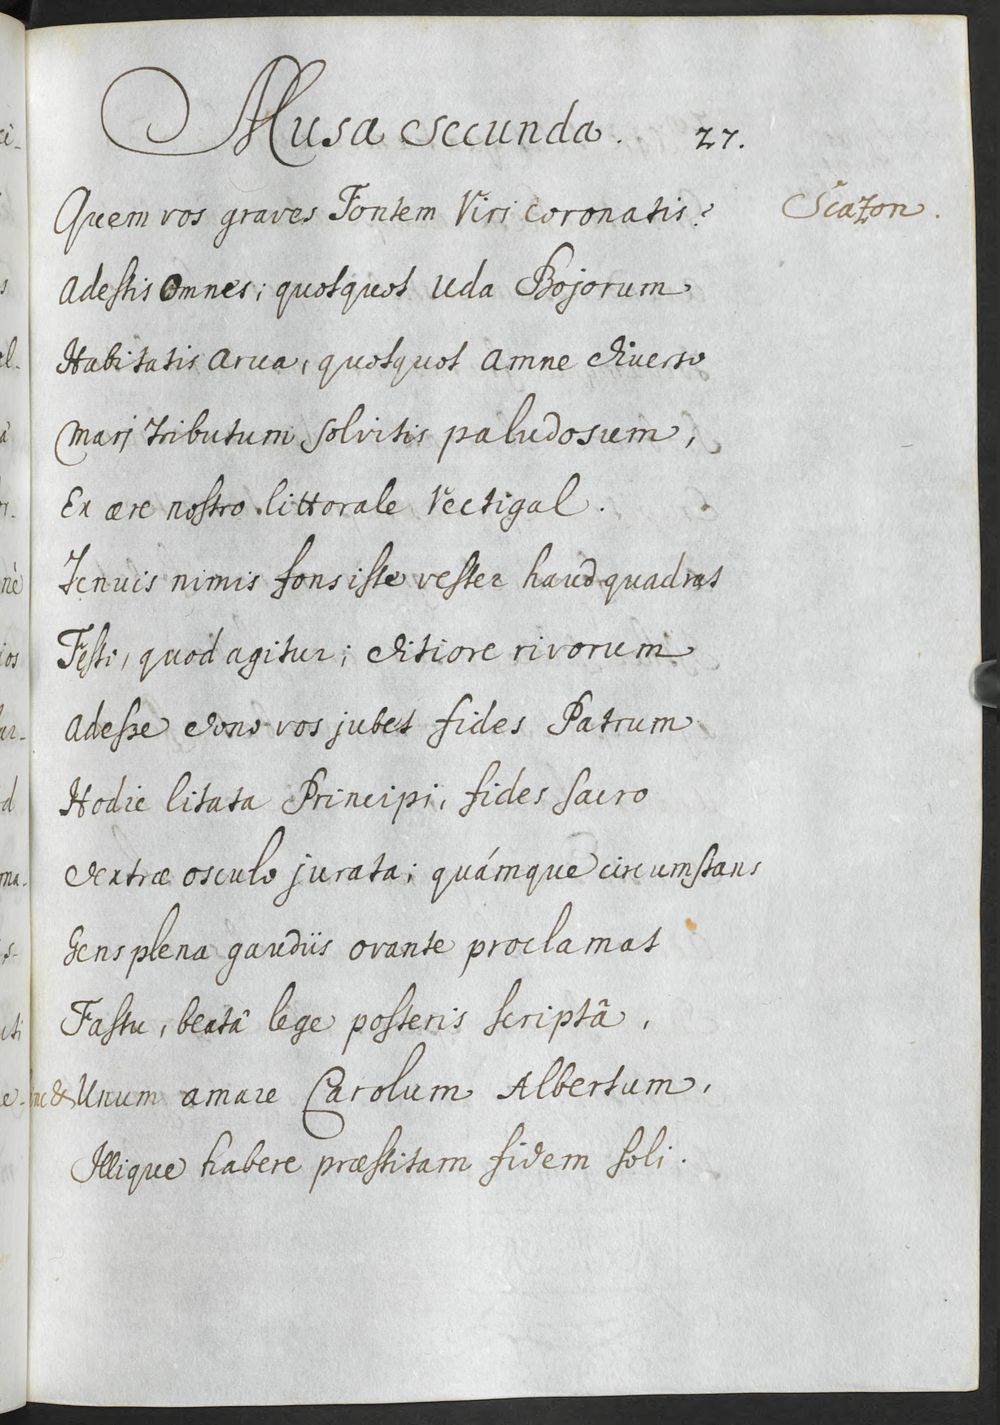 Musa secunda. 27.
Quem vos graves Fontem Viri coronatis? Scazon.
Adestis Omnes; quotquot Uda Bojorum
Habitatis arua, quotquot amne diverso
Marj tributum solvitis paludosum,
Ex ære nostro littorale Vectigal.
Tenuis nimis fons iste vester haud quadrat
Fęsti, quod agitur; ditiore rivorum
Adesse dono vos jubet fides Patrum
Hodie litata Principi, fides sacro
dextræ osculo jurata; quámque circumstans
Gens plena gaudiis ovante proclamat
Fastu, beatâ lege posteris scriptâ,
Unum amare Carolum Albertum,
Illique habere præstitam fidem soli.